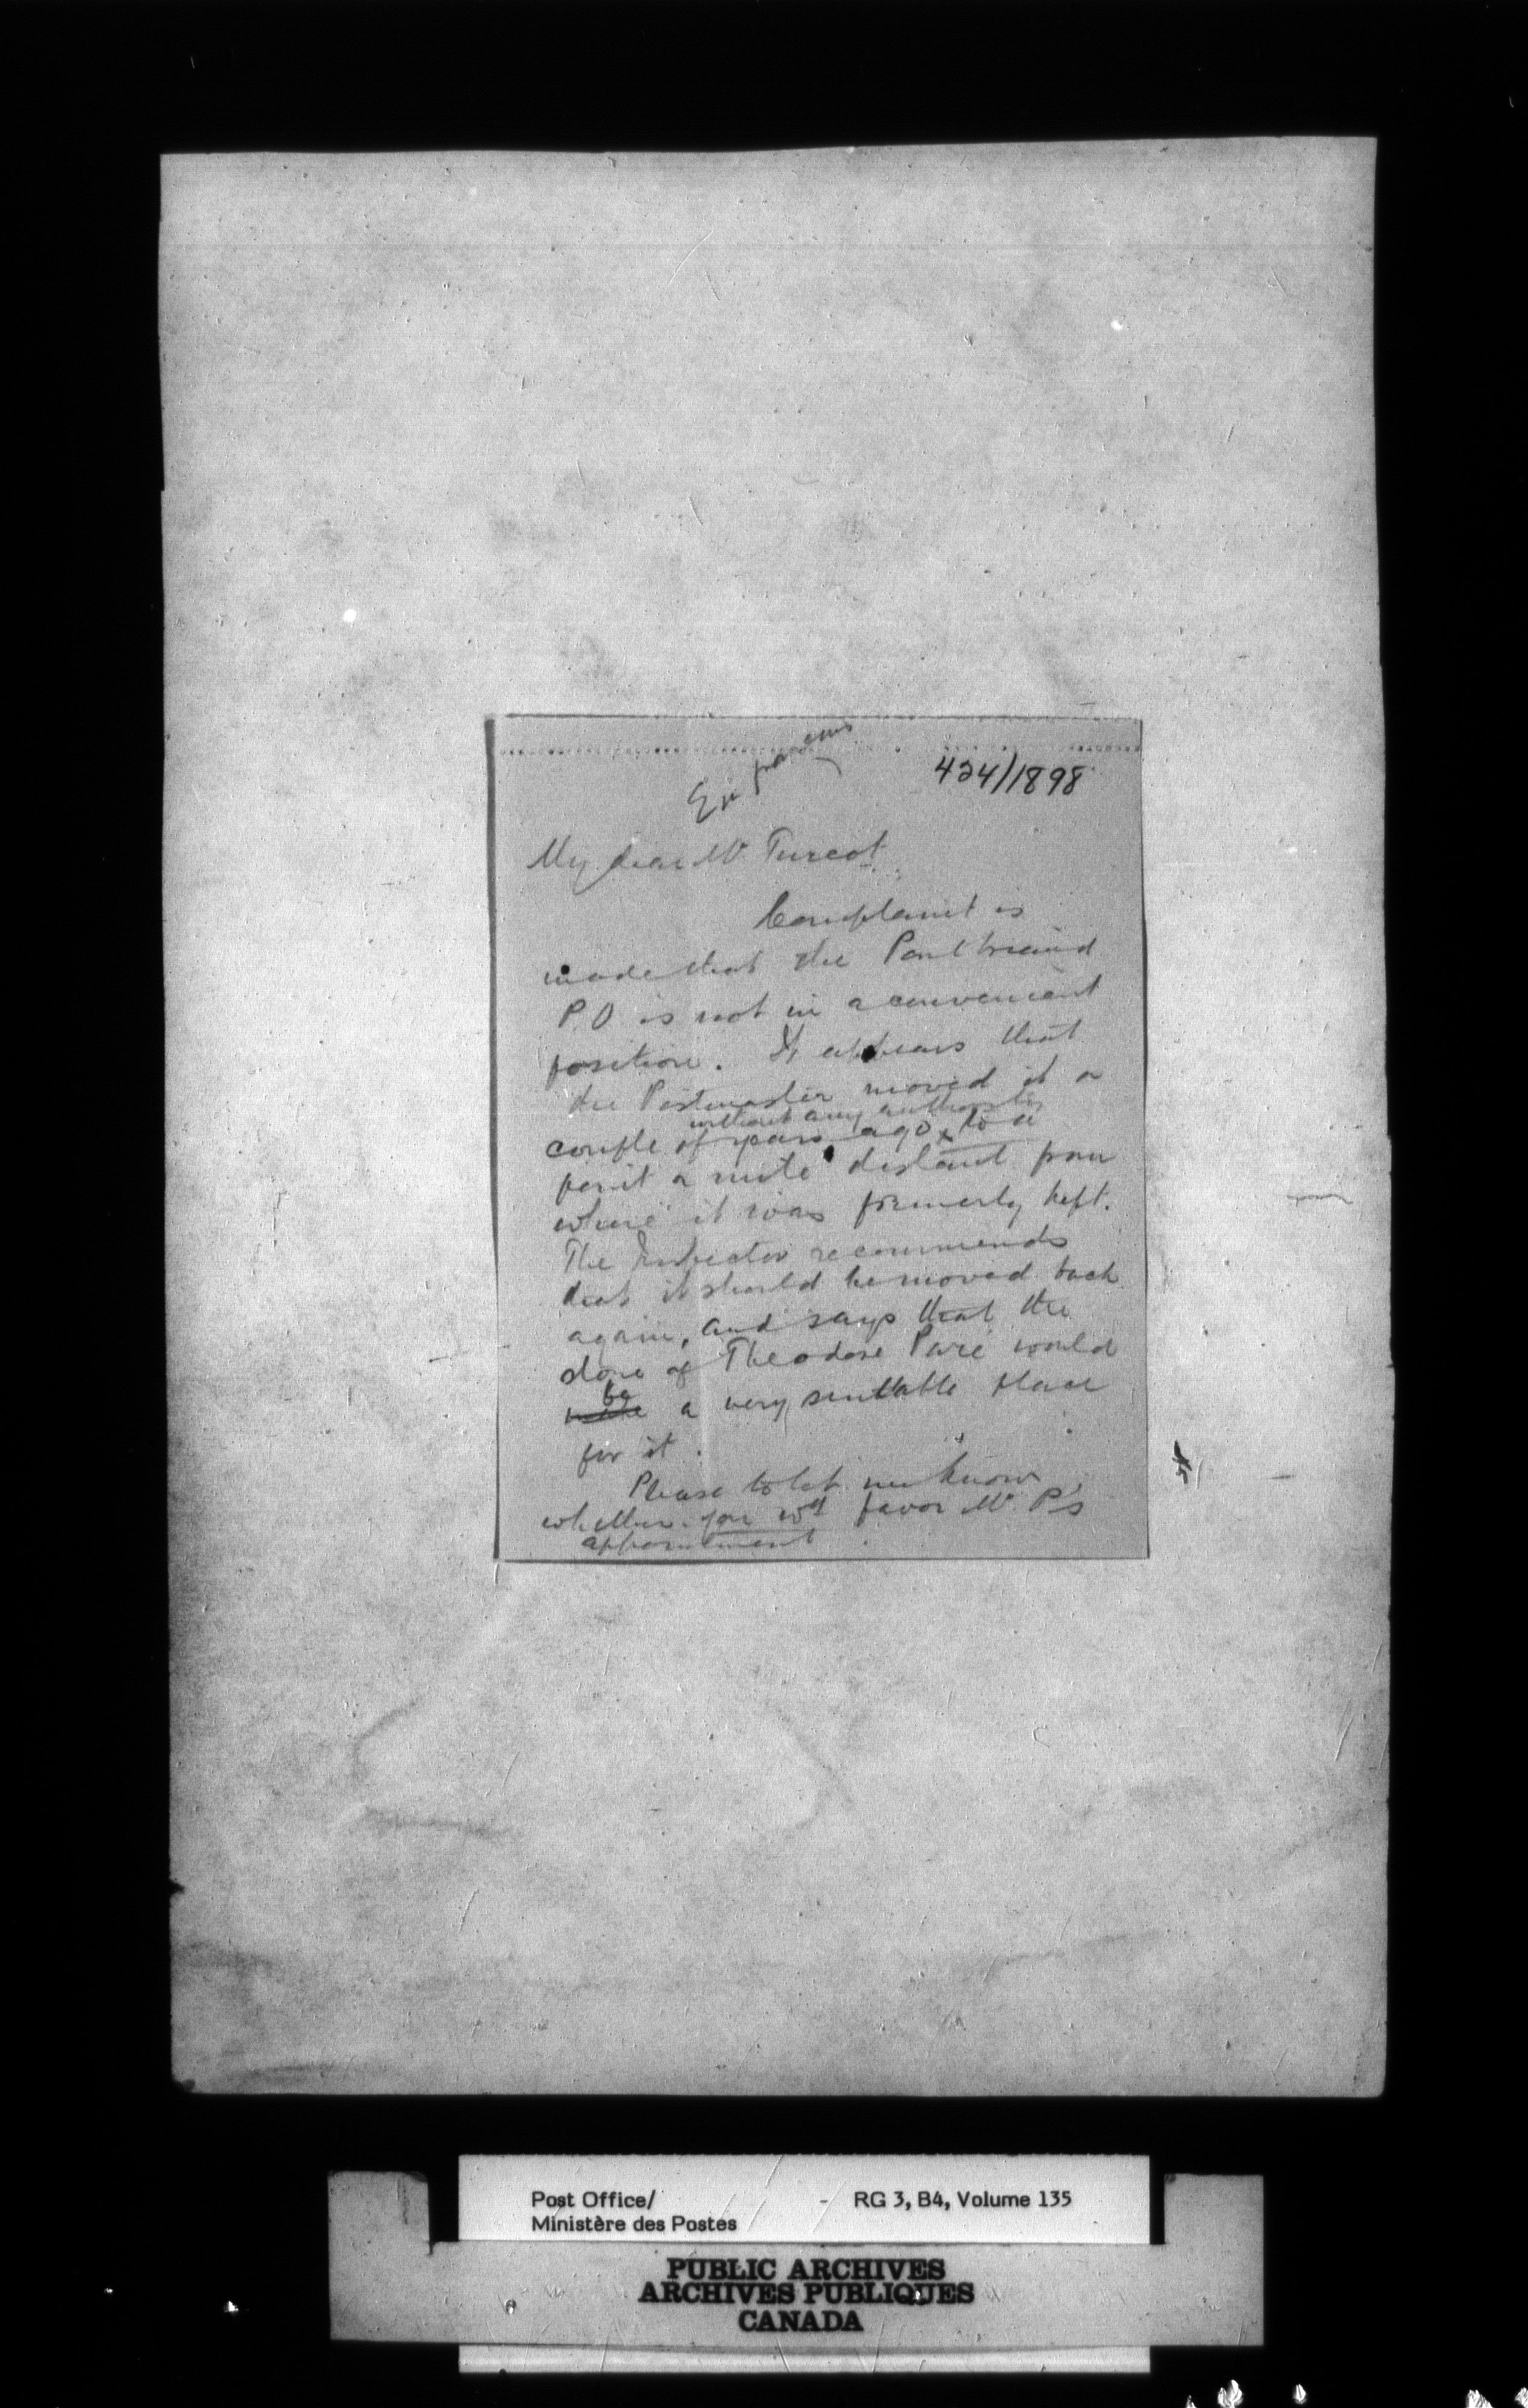 En français
424/1898
My dear Mr Turcot
Complaint is
made that the Pontbriand
P.O is not in a convenient
position. It appears that
the Postmaster moved it a
without any authority
couple of years ago x to a
point a mile distant from
where it was formerly kept.
The Inspector recommends
that it should be moved back
again, and says that the
store of Theodore Paré would
be
a very suitable place
for it.
Please to let me know
whether you wd favor Mr. P's
appointment
Post Office/ - RG 3, B4, Volume 135
Ministère des Postes
PUBLIC ARCHIVES
ARCHIVES PUBLIQUES
CANADA